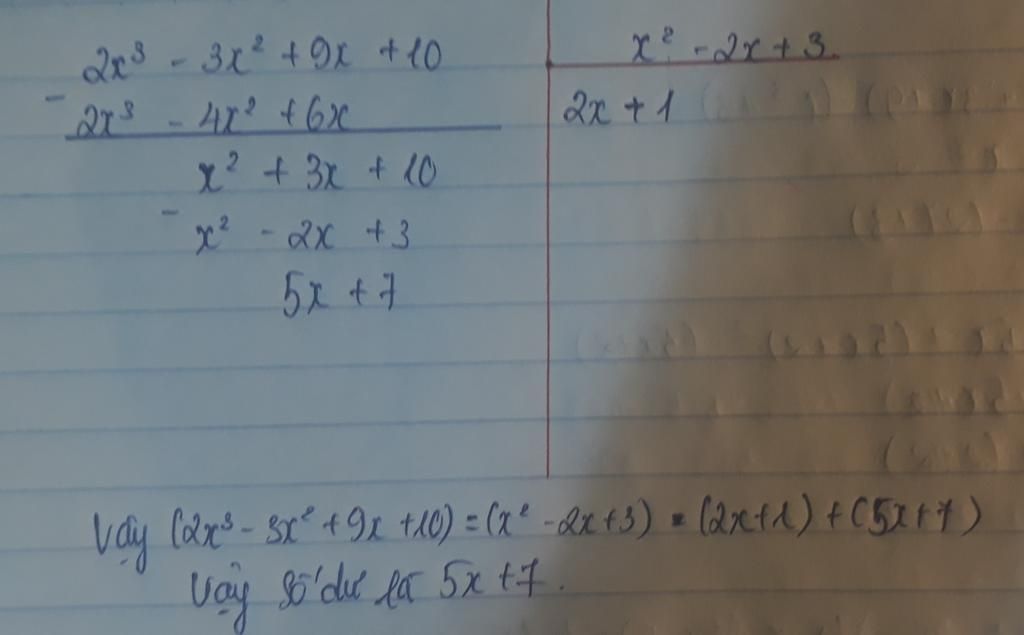 2x³ - 3x² + 9x + 10
x² - 2x + 3
- 2x³ - 4x² + 6x
2x + 1
x² + 3x + 10
- x² - 2x + 3
5x + 7
Vậy (2x³ - 3x² + 9x + 10) = (x² - 2x + 3) . (2x + 1) + (5x + 7)
Vậy số dư là 5x + 7.